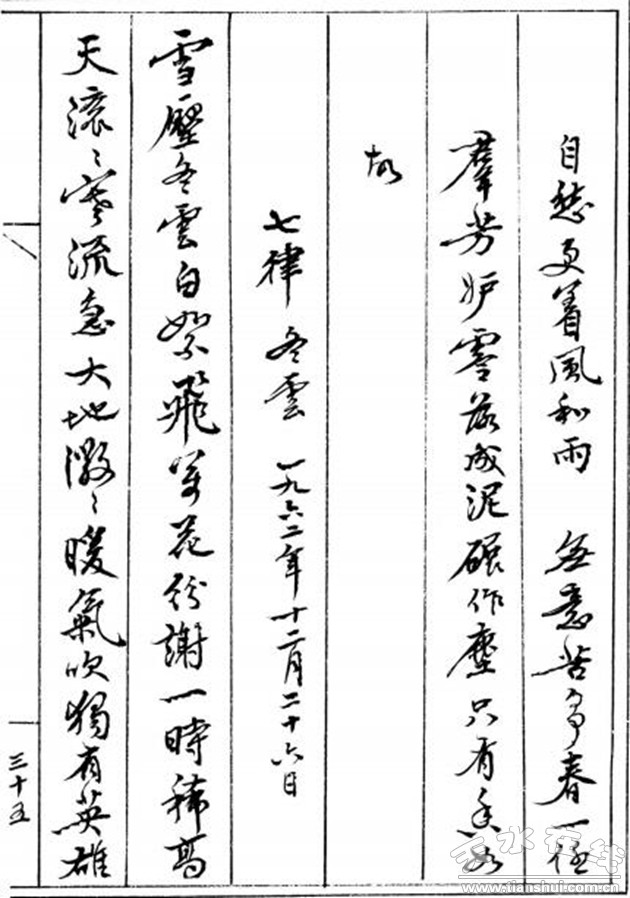 自愁更着風和雨 無意苦争春一任
羣芳妒零落成泥碾作塵只有香如
故
七律 冬雲 一九六二年十二月二十六日
雪壓冬雲白絮飛萬花紛謝一時稀高
天滚〻寒流急大地微〻暖氣吹獨有英雄
三十五
天水在线
www.tianshui.com.cn